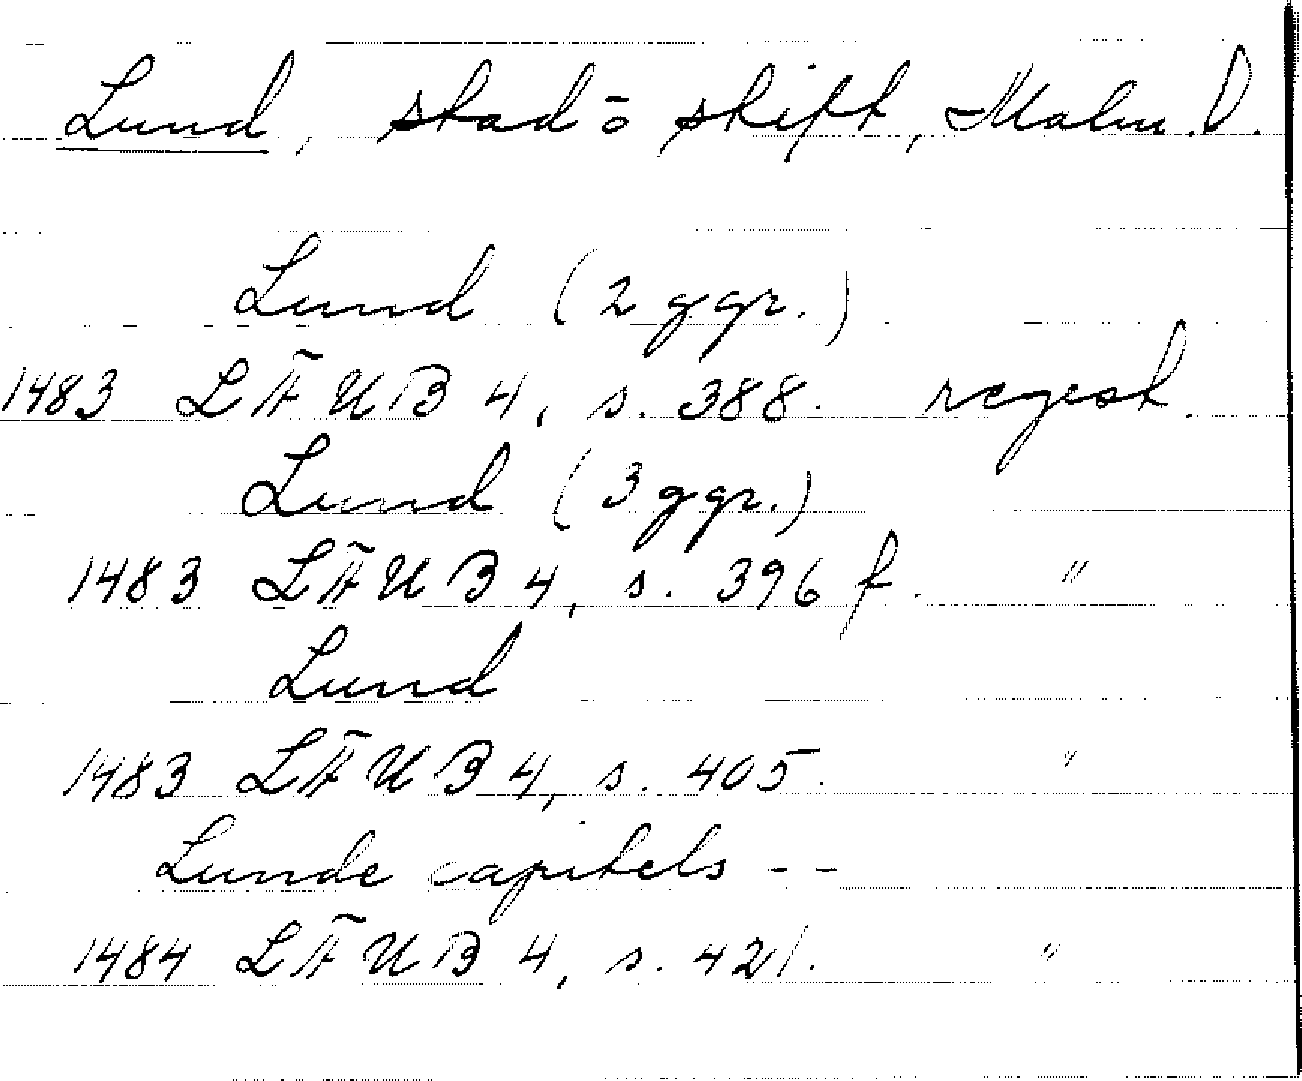 Lund, stad o stift, Malm. D.
Lund (2 ggr.)
1483 LÄUB 4, s. 388. regest.
Lund (3 ggr.)
1483 LÄUB 4, s. 396 f. "
Lund
1483 LÄUB 4, s. 405. "
Lunde capitels --
1484 LÄUB 4, s. 421. "